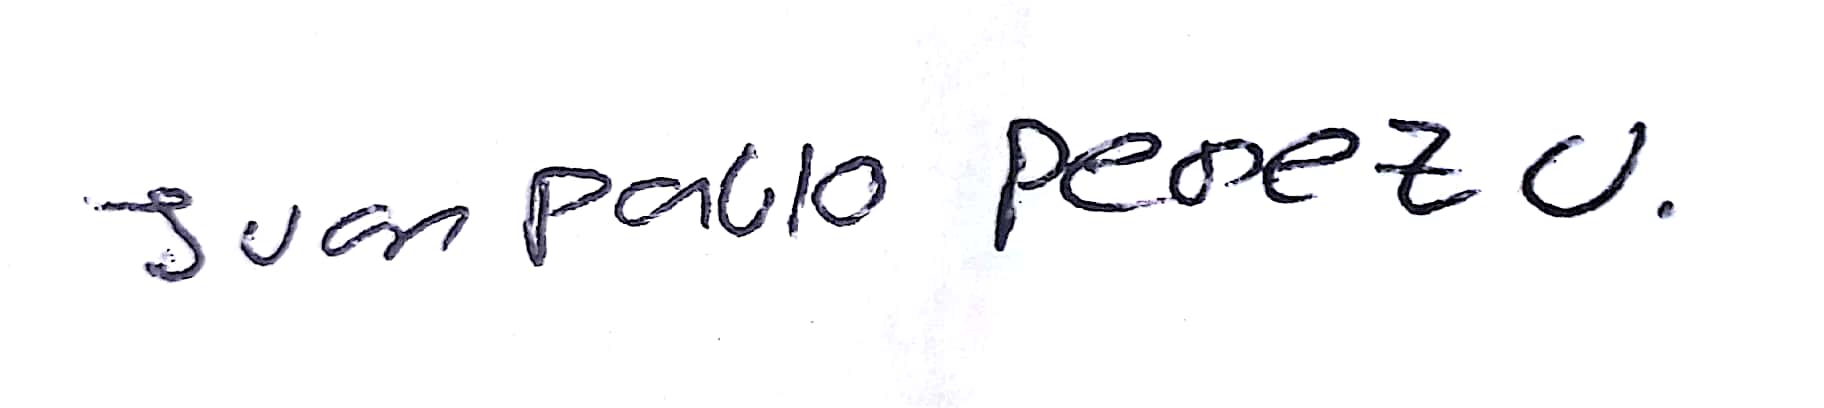 Juan Pablo Perez U.